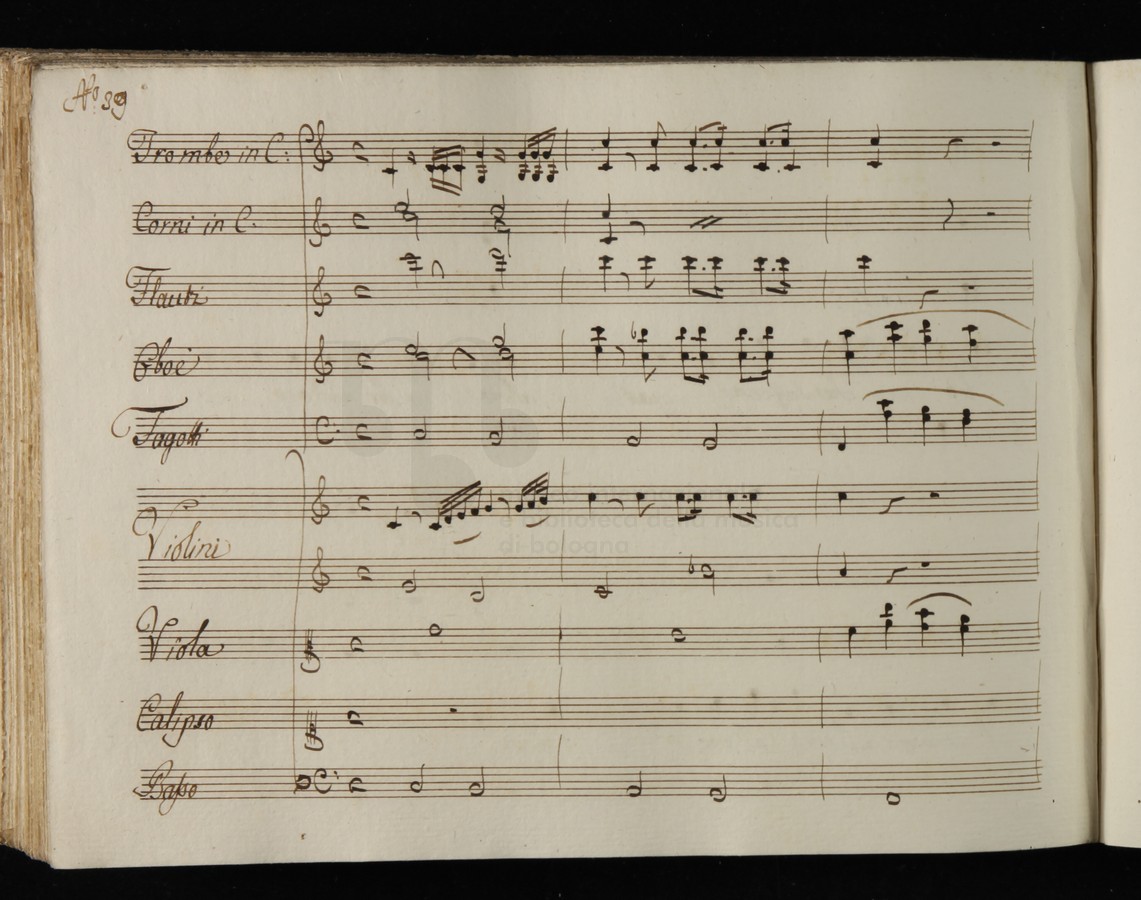 No 39
Trombe in C:
Corni in C.
Flauti
Oboè
Fagotti
Violini
e biblioteca della musica
di bologna
Viola
Calipso
Basso